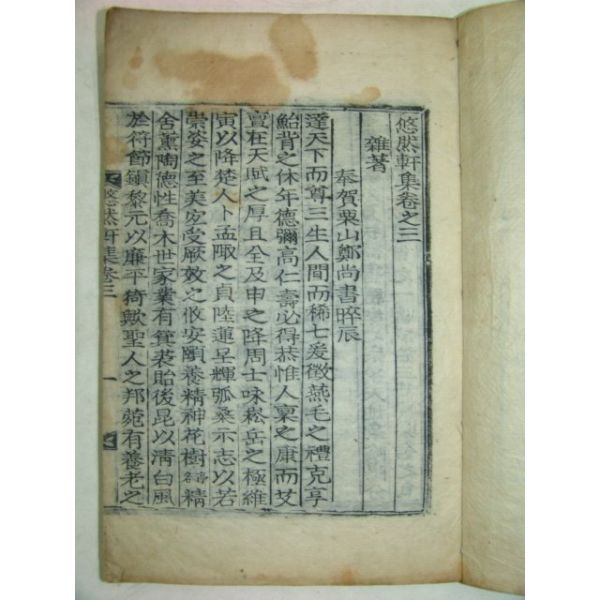 悠然軒集卷之三
雜著
奉賀栗山鄭尙書晬辰
達天下而尊三生人間而稀七爰徵燕毛之禮克享
鮐背之休年德彌高仁壽必得恭惟人稟之康而艾
賣在天賦之厚且全及申之降周士味崧岳之極維
寅以降楚人卜孟陬之貞陸蓮呈輝弧桑示志以若
崇姿之至美宏受厥效之攸安頤養精神花樹
精
舍薰陶德性喬木世家業有箕裘貽後昆以淸白風
於符節鎭黎元以廉平猗歟聖人之邦菀有養老之
悠然軒集卷三
一